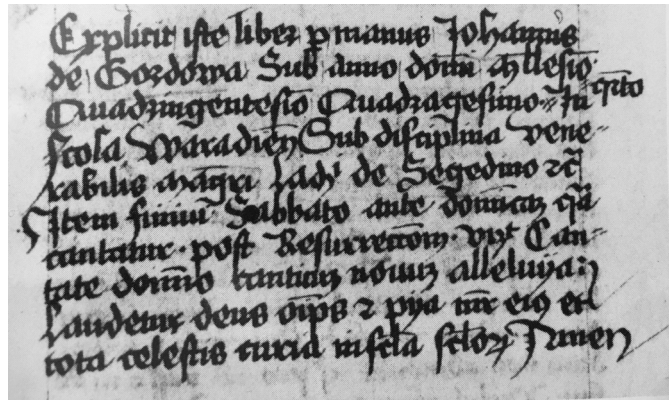 Explicit iste liber p manus Johannis
de Gordowa Sub anno domi Millesio
Quadringentesio Quadragesimo In qrto
scola Waradien Sub disciplina vene-
rabilis magri Ladi de Segedino etc
Item finiui Sabbato ante dominicaz qa
cantatur post Resurrectom vz Can-
tate domino canticuz nouuz alleluya
Laudetur deus oips et pya mr eius et
tota celestis curia in scla sclorz Amen